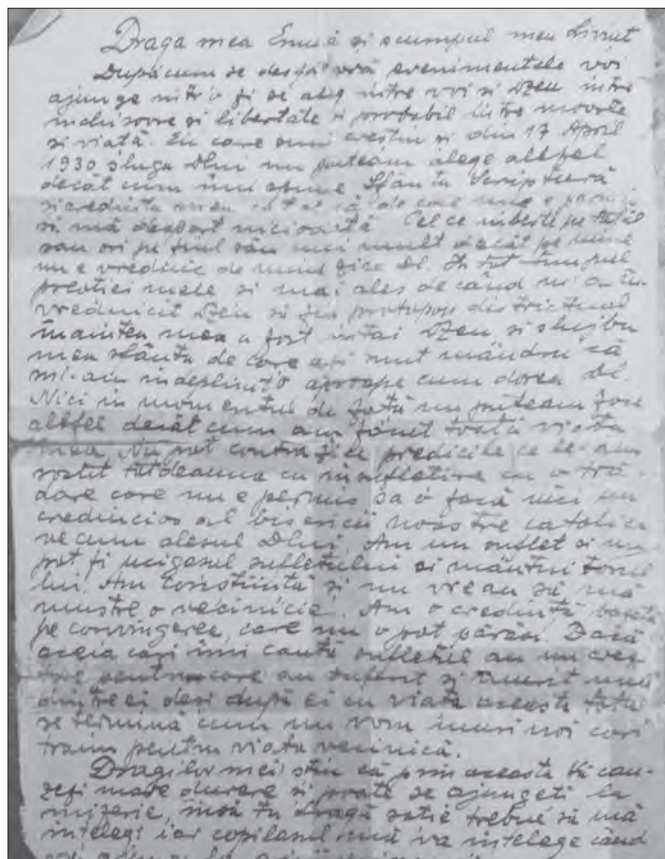 Draga mea Emă și scumpul meu Liviuț
După cum se desfășură evenimentele voi
ajunge într'o zi să aleg între voi și Dzeu între
închisoare și libertate și probabil între moarte
și viață. Eu care sunt creștin și din 17 April
1930 sluga Dlui nu puteam alege altfel
decât cum îmi spune Sfânta Scriptură
și credința mea
să mă despart niciodată Cel ce iubește pe tatăl
sau ori pe fiul său mai mult decât pe mine
nu e vrednic de mine zice Dl. În tot timpul
preoției mele și mai ales de când m'a în-
vrednicit Dzeu să fiu protopop districtual
înaintea mea a fost întâi Dzeu și slujba
mea sfântă de care azi sunt mândru că
mi-am îndeplinit'o aproape cum dorea Dl.
Nici în momentul de față nu puteam face
altfel decât cum am făcut toată viața
mea. Nu pot contrazice predicile ce le-am
rostit totdeauna cu însuflețire cu o tră-
dare care nu e permis să o facă nici un
credincios al bisericii noastre catolice
necum alesul Dlui. Am un suflet și nu
pot fi ucigașul sufletului și mântuitorul
lui. Am conștiință și nu vreau să mă
mustre o vecinicie. Am o credință bazată
pe convingere, care nu o pot părăsi. Dacă
aceia cari îmi caută sufletul au un crez
pentru care au suferit și murit unii
dintre ei deși după ei cu viața aceasta totul
se termină cum nu vom muri noi cari
trăim pentru viața vecinică.
Dragilor mei știu că prin aceasta vă cau-
zez mare durere și poate să ajungeți la
mizerie, însă tu dragă soție trebue să mă
înțelegi iar copilașul meu va înțelege când